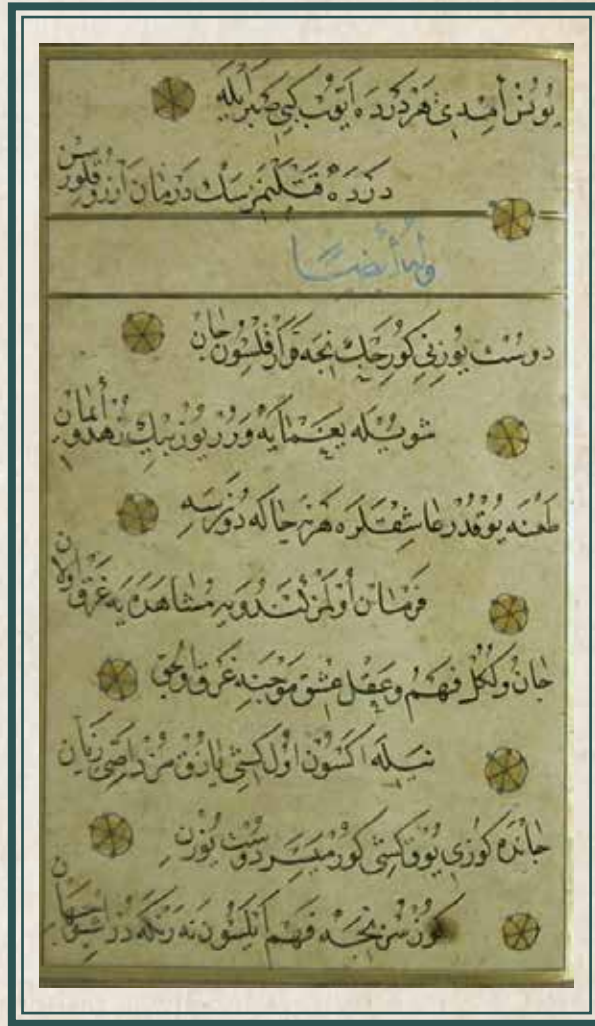 يونس امدى هر درده ايوب كبى صبر ايله
درده قتلنمزسك درمان آرزو قلورسن
وله أيضا
دوست يوزنى كورجك نجه قرار قلسون جان
شويله يغمايه ورر يوز بيك زهد و ايمان
طعنه يوقدر عاشقلره هر نه حاله دوزرسه
فرمان اولمز كندويه مشاهده يه غرق اولان
جان و كوكل فهم و عقل عشق موجنه غرق اولجق
نيله اكسون اول كشى يازق مزد اصى زيان
جانده كوزى يوق كشى كورميسر دوست يوزن
كوزسز نجه فهم ايلسون نه رنكه در اشبو جهان